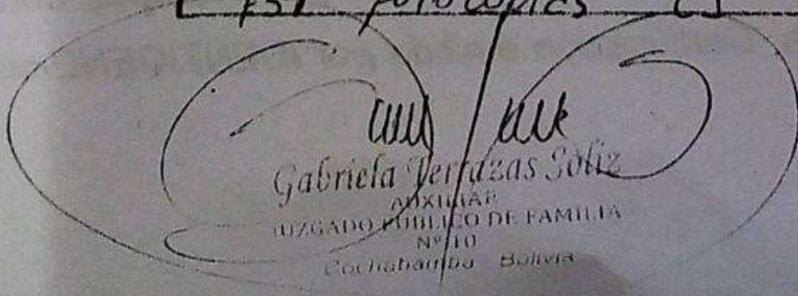 fotocopias
Gabriela Terrazas Soliz
AUXILIAR
JUZGADO PÚBLICO DE FAMILIA
Nº 10
Cochabamba Bolivia